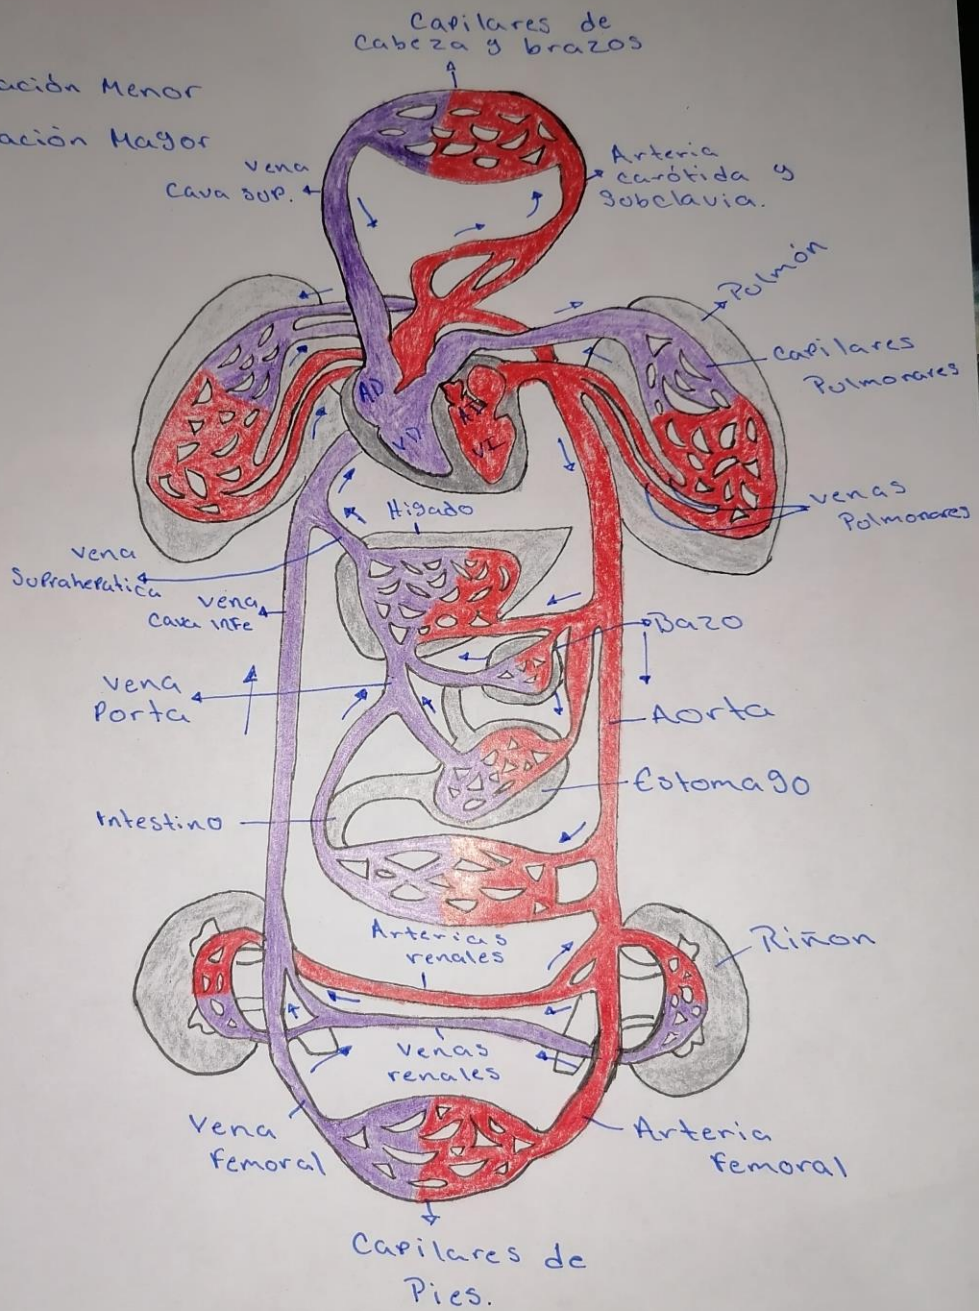 Capilares de
Cabeza y brazos
ación Menor
ación Mayor
vena
Cava sup.
Arteria
carótida y
Subclavia.
Pulmón
Capilares
Pulmonares
AD
VD
AI
VI
venas
Pulmonares
Higado
vena
Suprahepatica
vena
Cava infe
Bazo
vena
Porta
Aorta
Estomago
Intestino
Arterias
renales
Riñon
Venas
renales
Vena
femoral
Arteria
femoral
Capilares de
Pies.